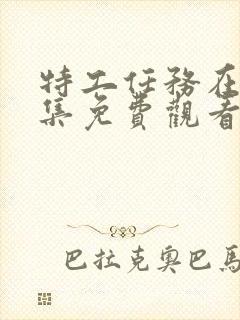 特工任務在
集免費觀看
巴拉克奧巴馬